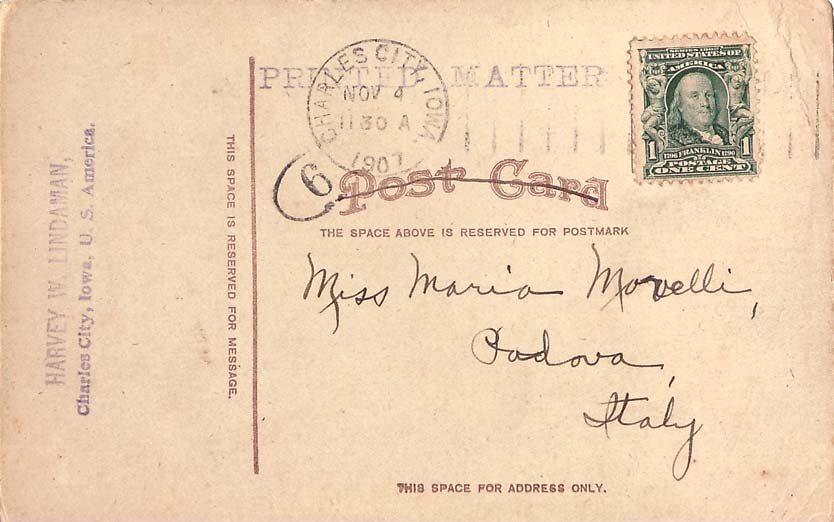 PRINTED MATTER
CHARLES CITY, IOWA.
NOV 4
11 30 A
1907
SERIES 1902
UNITED STATES OF
AMERICA
1706 FRANKLIN 1790
1 1
POSTAGE
ONE CENT
6
Post Card
THE SPACE ABOVE IS RESERVED FOR POSTMARK
HARVEY W. LINDAMAN,
Charles City, Iowa, U. S. America.
THIS SPACE IS RESERVED FOR MESSAGE.
Miss Maria Movelli,
Padova,
Italy
THIS SPACE FOR ADDRESS ONLY.